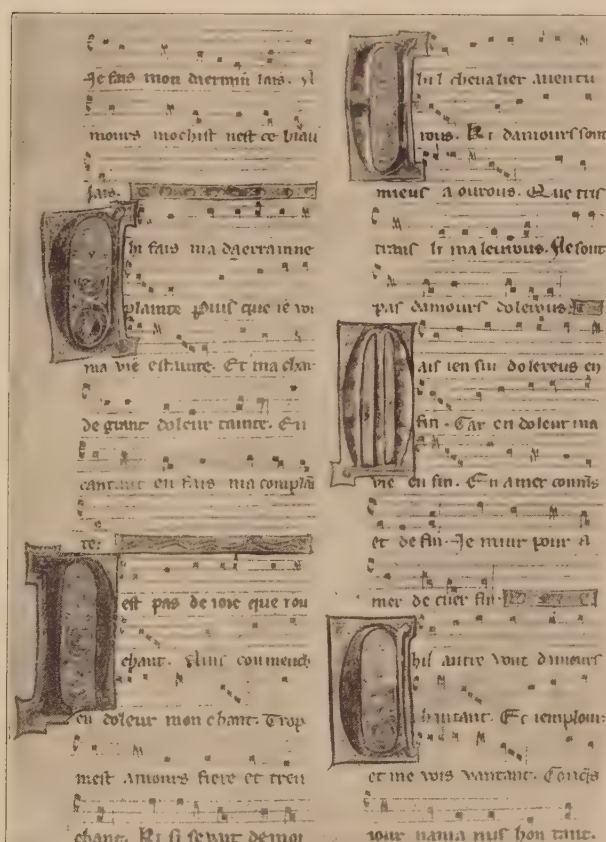 Je fais mon daermin lais. A
mours mochist nest ce biau
lais.
Chi fais ma daerrainne
plainte Puis que ie voi
ma vie estainte. Et ma char
de grant doleur tainte. En
cantant en fais ma complai
te.
Nest pas de ioie que iou
chant. Ains conmench
en doleur mon chant. Trop
mest amours fiere et tren
chant. Ki si se vait demoi
Chil chevalier auentu
rous. Ki damours sont
mieus a ourous. Que tris
trans li maleurous. Ne sont
pas damours dolerous.
Mais ien sui dolereus en
fin. Car en doleur ma
vie en fin. En amer
et de fin. Je muir pour a
mer de cuer fin.
Chil autre vont damours
chantant. Et iemplour
et me vois vantant. Conques
iour nama nus hon tant.